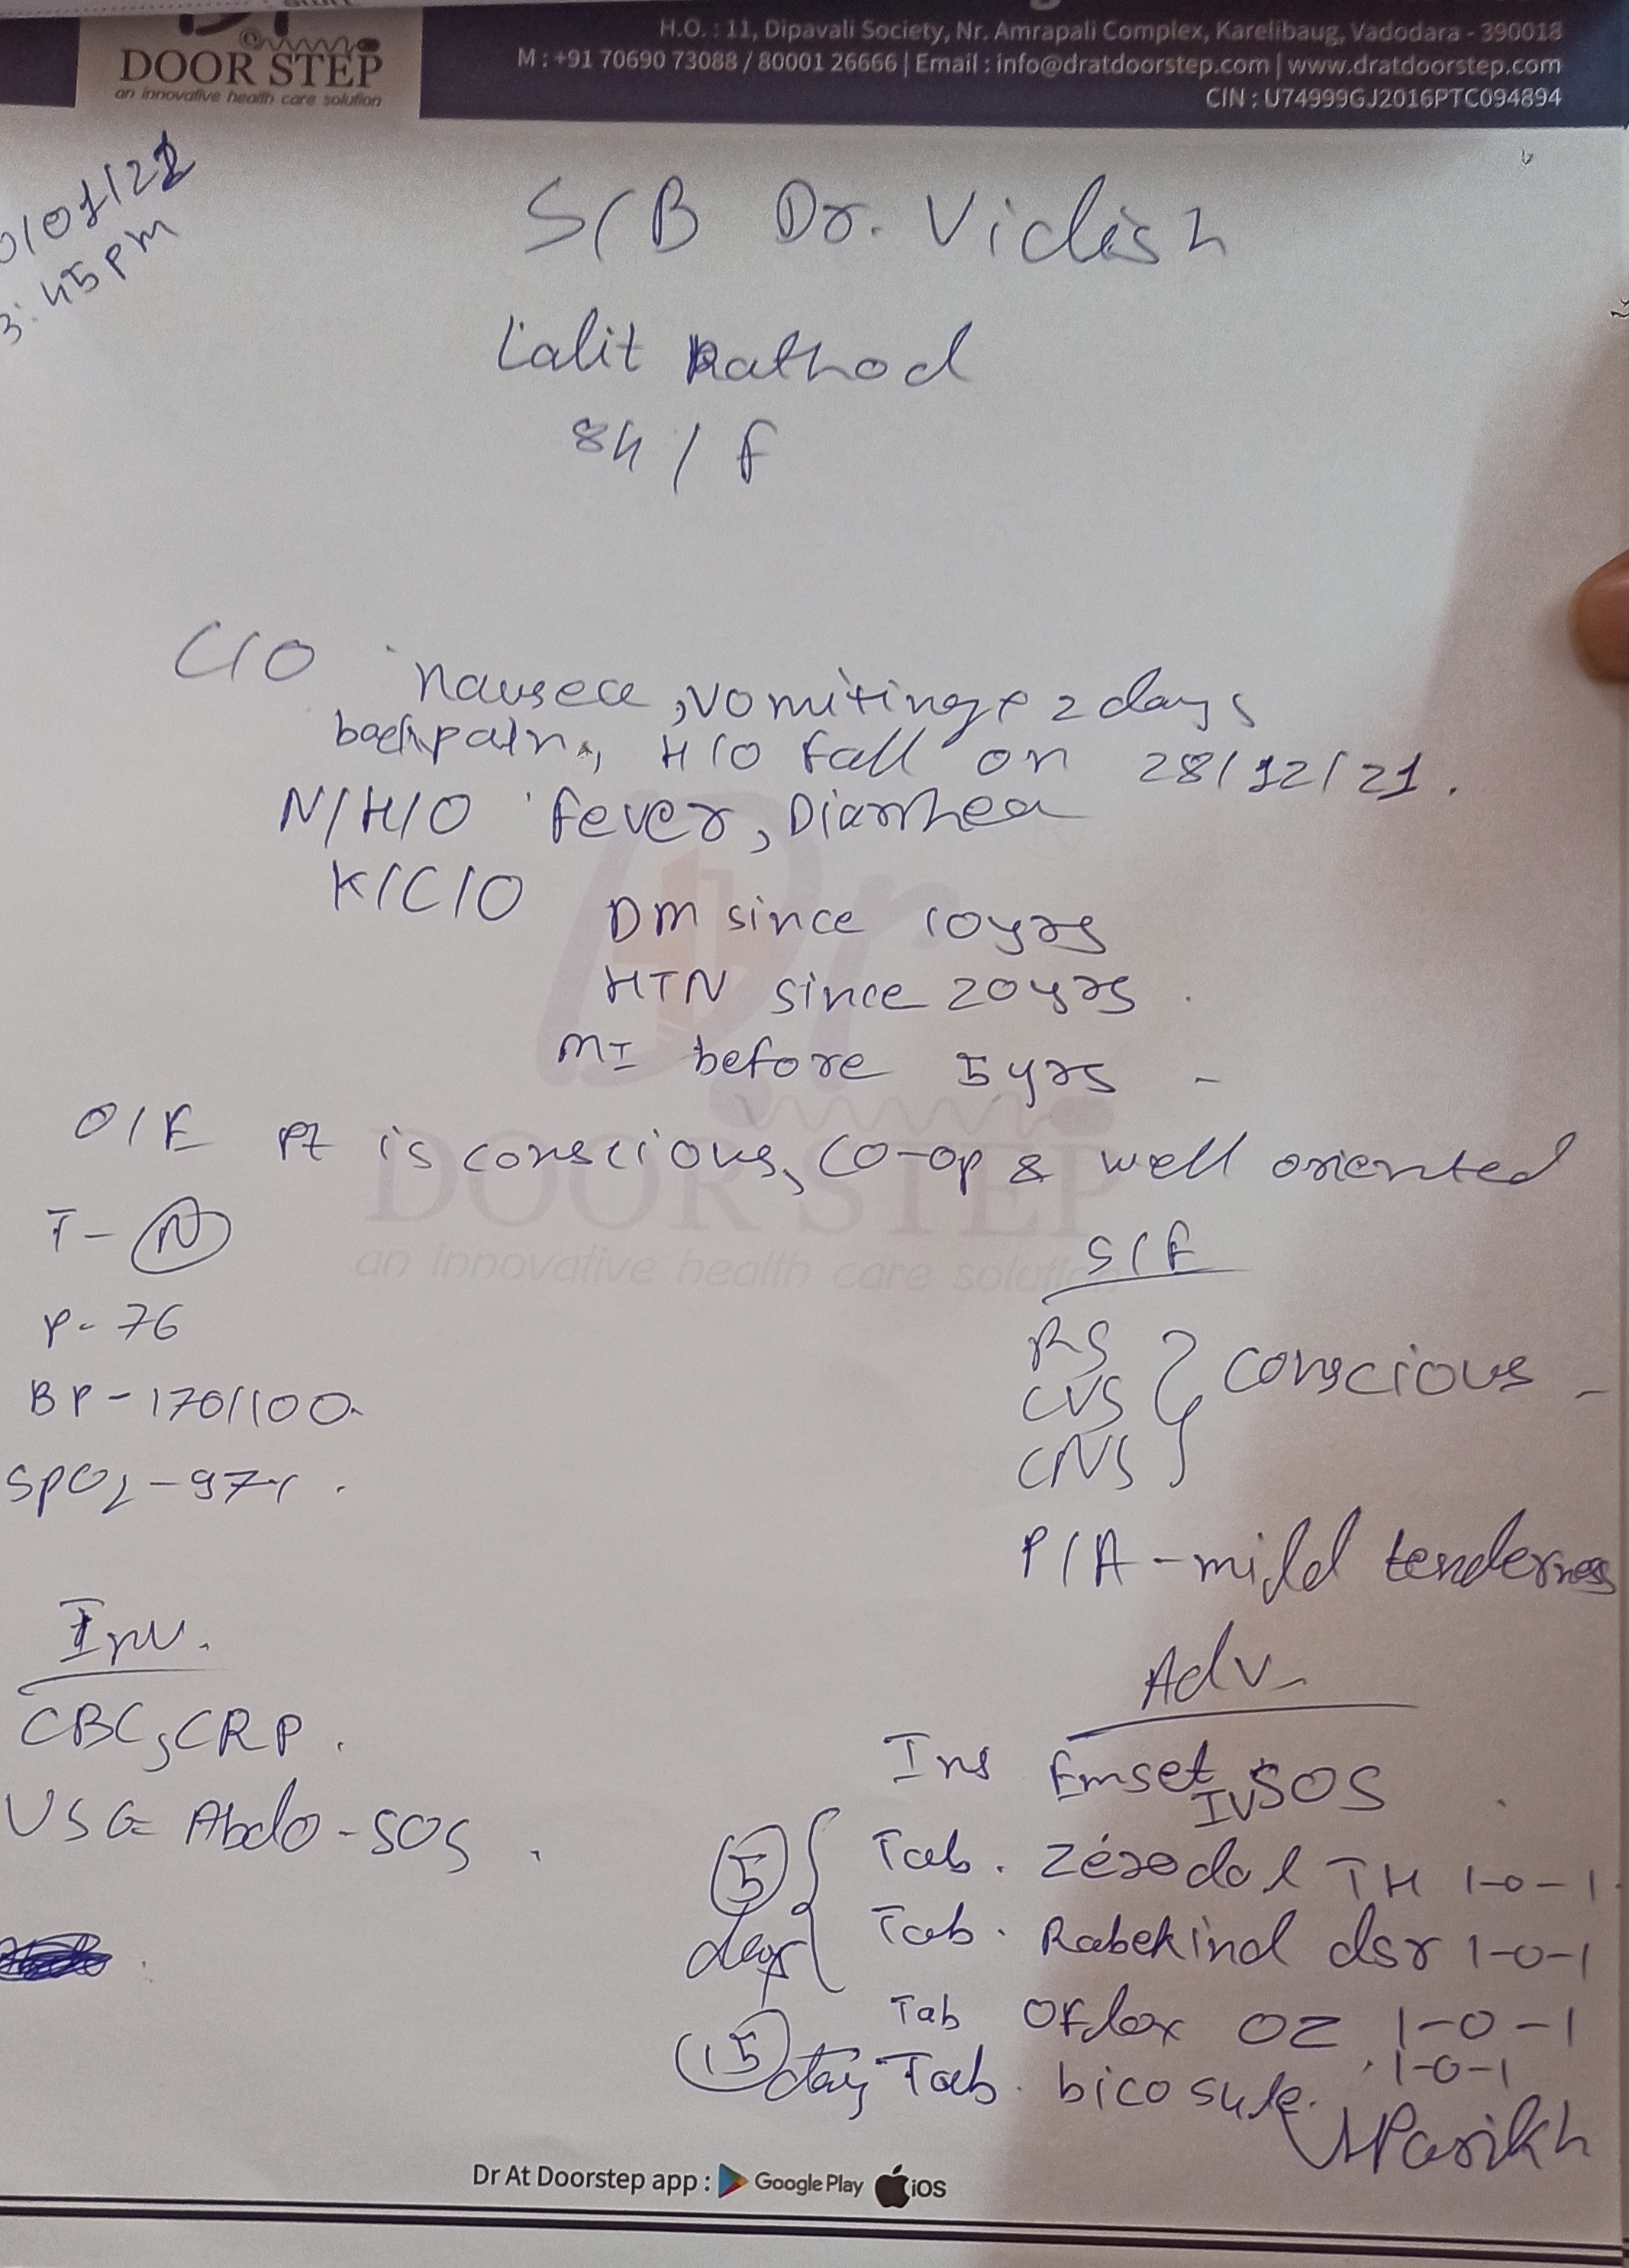 DOOR STEP
an innovative health care solution
H.O. : 11, Dipavali Society, Nr. Amrapali Complex, Karelibaug, Vadodara - 390018
M : +91 70690 73088 / 80001 26666 | Email : info@dratdoorstep.com | www.dratdoorstep.com
CIN : U74999GJ2016PTC094894
3:45pm
S/B Dr. Vidish
Lalit Rathod
84 / F
C/O nausece, vomiting x 2 days
backpain, H/O fall on 28/12/21.
N/H/O fever, Diarrhea
K/C/O DM since 10yrs
HTN since 20yrs
MI before 5yrs -
O/E Pt is conscious, co-op & well oriented
T - N
P - 76
BP - 170/100.
SpO2 - 97%.
S/E
RS
CVS } conscious -
CNS
P/A - mild tenderness
Inv.
CBC, CRP.
USG Abdo - SOS.
Adv.
Inj Emset IV SOS
5 days { Tab. Zerodol TH 1-0-1
Tab. Rabekind dsr 1-0-1
Tab Oflox OZ 1-0-1
15 day Tab. bicosule. 1-0-1
Parikh
Dr
DOOR STEP
an innovative health care solution
Dr At Doorstep app : Google Play iOS